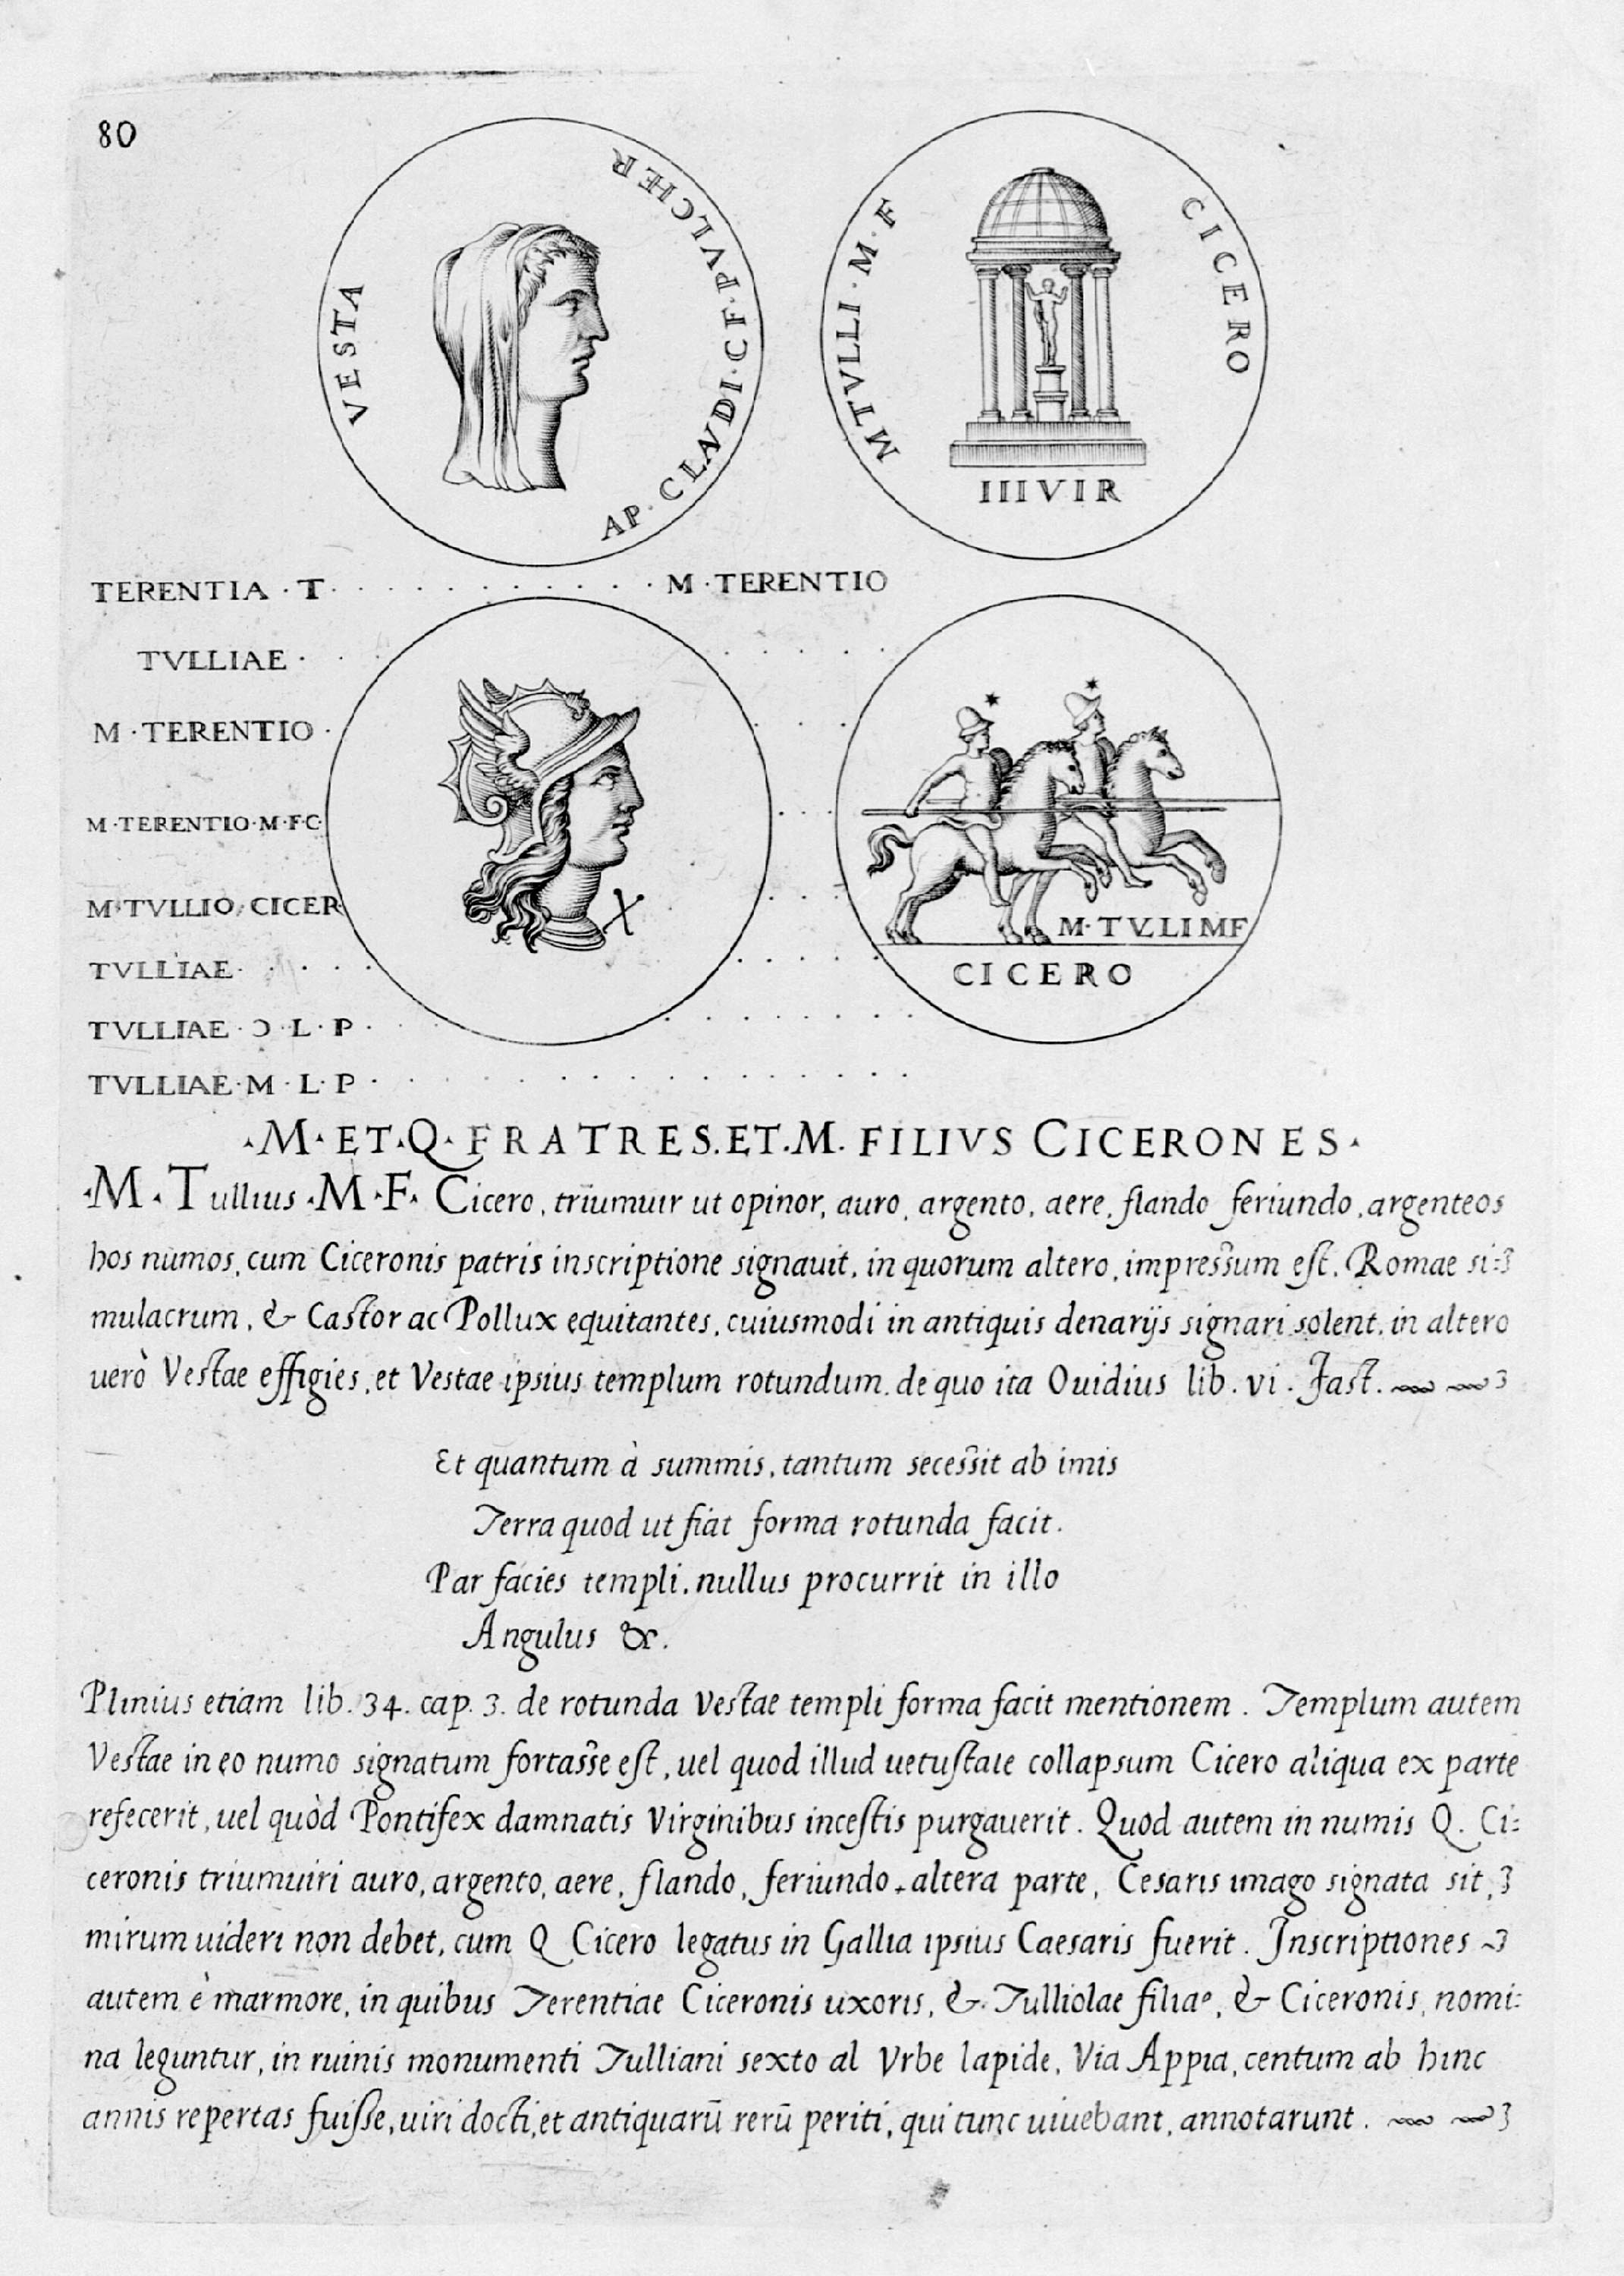 80
VESTA
AP · CLAVDI · C F · PVLCHER
M TVLLI · M · F
CICERO
III VIR
TERENTIA · T · · · · · · · · · · · M · TERENTIO
TVLLIAE ·
M · TERENTIO ·
M · TERENTIO · M · F · C ·
M · TVLLIO · CICER
TVLLIAE ·
TVLLIAE · Ɔ · L · P ·
TVLLIAE · M · L · P ·
X
M · TVLI MF
CICERO
· M · ET · Q · FRATRES. ET. M. FILIVS CICERONES ·
· M · Tullius · M · F · Cicero, triumuir ut opinor, auro, argento, aere, flando feriundo, argenteos
hos numos, cum Ciceronis patris inscriptione signauit, in quorum altero, impressum est, Romae si:
mulacrum, & Castor ac Pollux equitantes, cuiusmodi in antiquis denarijs signari solent, in altero
uerò Vestae effigies, et Vestae ipsius templum rotundum. de quo ita Ouidius lib. vi. Fast.
Et quantum à summis, tantum secessit ab imis
Terra quod ut fiat forma rotunda facit.
Par facies templi, nullus procurrit in illo
Angulus &c.
Plinius etiam lib. 34. cap. 3. de rotunda Vestae templi forma facit mentionem. Templum autem
Vestae in eo numo signatum fortasse est, uel quod illud uetustate collapsum Cicero aliqua ex parte
refecerit, uel quòd Pontifex damnatis Virginibus incestis purgauerit. Quod autem in numis Q. Ci:
ceronis triumuiri auro, argento, aere, flando, feriundo, altera parte, Cesaris imago signata sit,
mirum uideri non debet, cum Q Cicero legatus in Gallia ipsius Caesaris fuerit. Inscriptiones
autem è marmore, in quibus Terentiae Ciceronis uxoris, & Tulliolae filiae, & Ciceronis, nomi:
na leguntur, in ruinis monumenti Tulliani sexto al Vrbe lapide, Via Appia, centum ab hinc
annis repertas fuisse, uiri docti, et antiquarū rerū periti, qui tunc uiuebant, annotarunt.